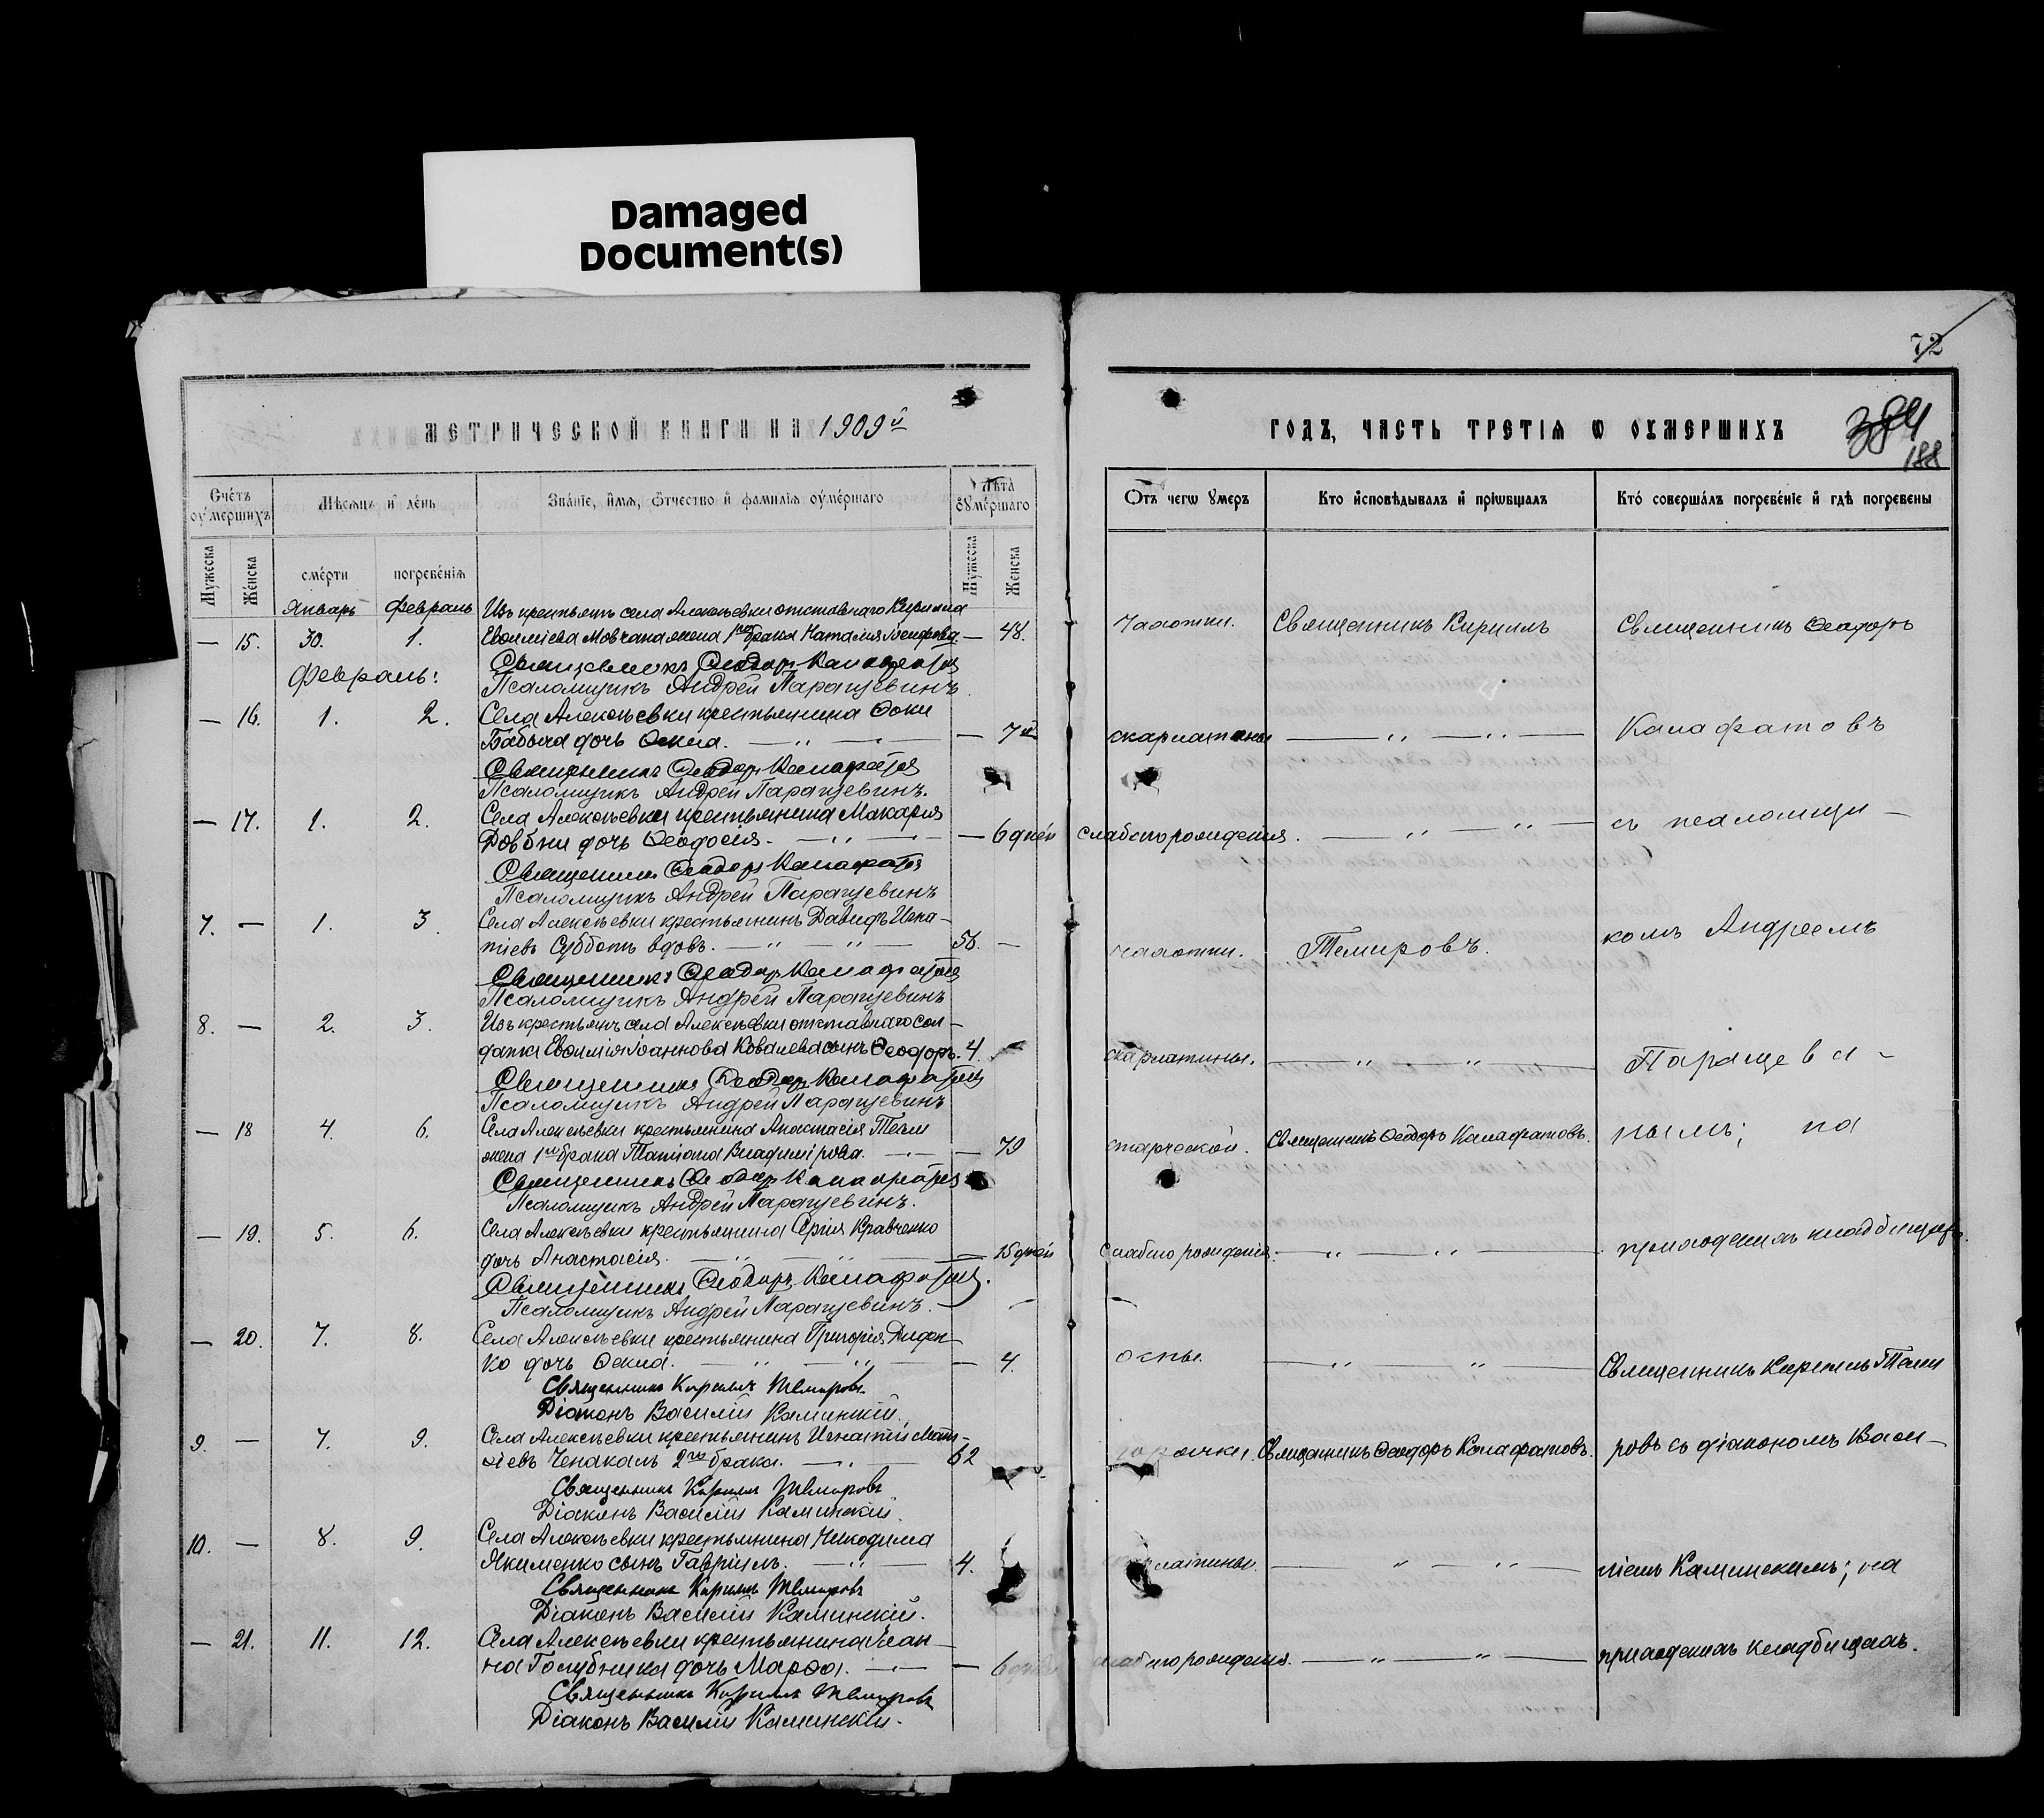 Damaged
Document(s)
72
МЕТРИЧЕСКОЙ КНИГИ НА 1909й
ГОДЪ, ЧАСТЬ ТРЕТІЯ Ѡ ОУМЕРШИХЪ
384
188
Счетъ оумершихъ
Мѣсяцъ и день
Званіе, имя, отчество и фамилія оумершаго
Лѣта оумершаго
Отъ чегѡ умеръ
Кто исповѣдывалъ и пріѡбщалъ
Кто совершалъ погребеніе и гдѣ погребены
Мужеска
Женска
смерти
погребенія
Мужеска
Женска
Январь Февраль Изъ крестьянъ села Алексѣевки отставнаго Кирилла
— 15. 30. 1. Евѳиміева Мовчана жена 1го брака Наталія — 48. чахотки. Священникъ Кириллъ Священникъ Ѳеодоръ
Февраль: Священникъ Ѳеодоръ Калафатовъ
Псаломщикъ Андрей Паращевинъ
— 16. 1. 2. Села Алексѣевки крестьянина Ѳоки
Бабыча дочь Ѳекла. — 7 скарлатины Калафатовъ
Священникъ Ѳеодоръ Калафатовъ
Псаломщикъ Андрей Паращевинъ.
— 17. 1. 2. Села Алексѣевки крестьянина Макарія
Довбни дочь Ѳеодосія. — 6 дней слабаго рожденія. съ псаломщи-
Священникъ Ѳеодоръ Калафатовъ
Псаломщикъ Андрей Паращевинъ
7. — 1. 3. Села Алексѣевки крестьянинъ Давидъ Игна-
тіевъ Субботъ вдовъ. 56. — чахотки. Темировъ. комъ Андреемъ
Священникъ Ѳеодоръ Калафатовъ
Псаломщикъ Андрей Паращевинъ
8. — 2. 3. Изъ крестьянъ села Алексѣевки отставнаго сол-
дата Евѳимія Іоаннова Ковалева сынъ Ѳеодоръ. 4. скарлатины. Паращеви-
Священникъ Ѳеодоръ Калафатовъ
Псаломщикъ Андрей Паращевинъ
— 18 4. 6. Села Алексѣевки крестьянина Анастасія
жена 1го брака Татіана Владимірова. — 79 старческой. Священникъ Ѳеодоръ Калафатовъ. нымъ; на
Священникъ Ѳеодоръ Калафатовъ
Псаломщикъ Андрей Паращевинъ.
— 19. 5. 6. Села Алексѣевки крестьянина Сергія Кравченко
дочь Анастасія. — 15 дней слабаго рожденія. приходскомъ кладбищѣ.
Священникъ Ѳеодоръ Калафатовъ.
Псаломщикъ Андрей Паращевинъ.
— 20. 7. 8. Села Алексѣевки крестьянина Григорія Диден-
ко дочь Ѳекла. — 4. оспы. Священникъ Кириллъ Теми
Священникъ Кириллъ Темировъ
Діаконъ Василій Каминскій.
9. — 7. 9. Села Алексѣевки крестьянинъ Игнатій Мат-
ѳіевъ Чепакалъ 2го брака. 62 Священникъ Ѳеодоръ Калафатовъ. ровъ съ діакономъ Васи-
Священникъ Кириллъ Темировъ
Діаконъ Василій Каминскій.
10. — 8. 9. Села Алексѣевки крестьянина Никодима
Якименко сынъ Гавріилъ. 4. ліемъ Каминскимъ; на
Священникъ Кириллъ Темировъ
Діаконъ Василій Каминскій.
— 21. 11. 12. Села Алексѣевки крестьянина Іоан-
на Голубника дочь Марѳа. — 6 слабаго рожденія. приходскомъ кладбищѣ.
Священникъ Кириллъ Темировъ
Діаконъ Василій Каминскій.